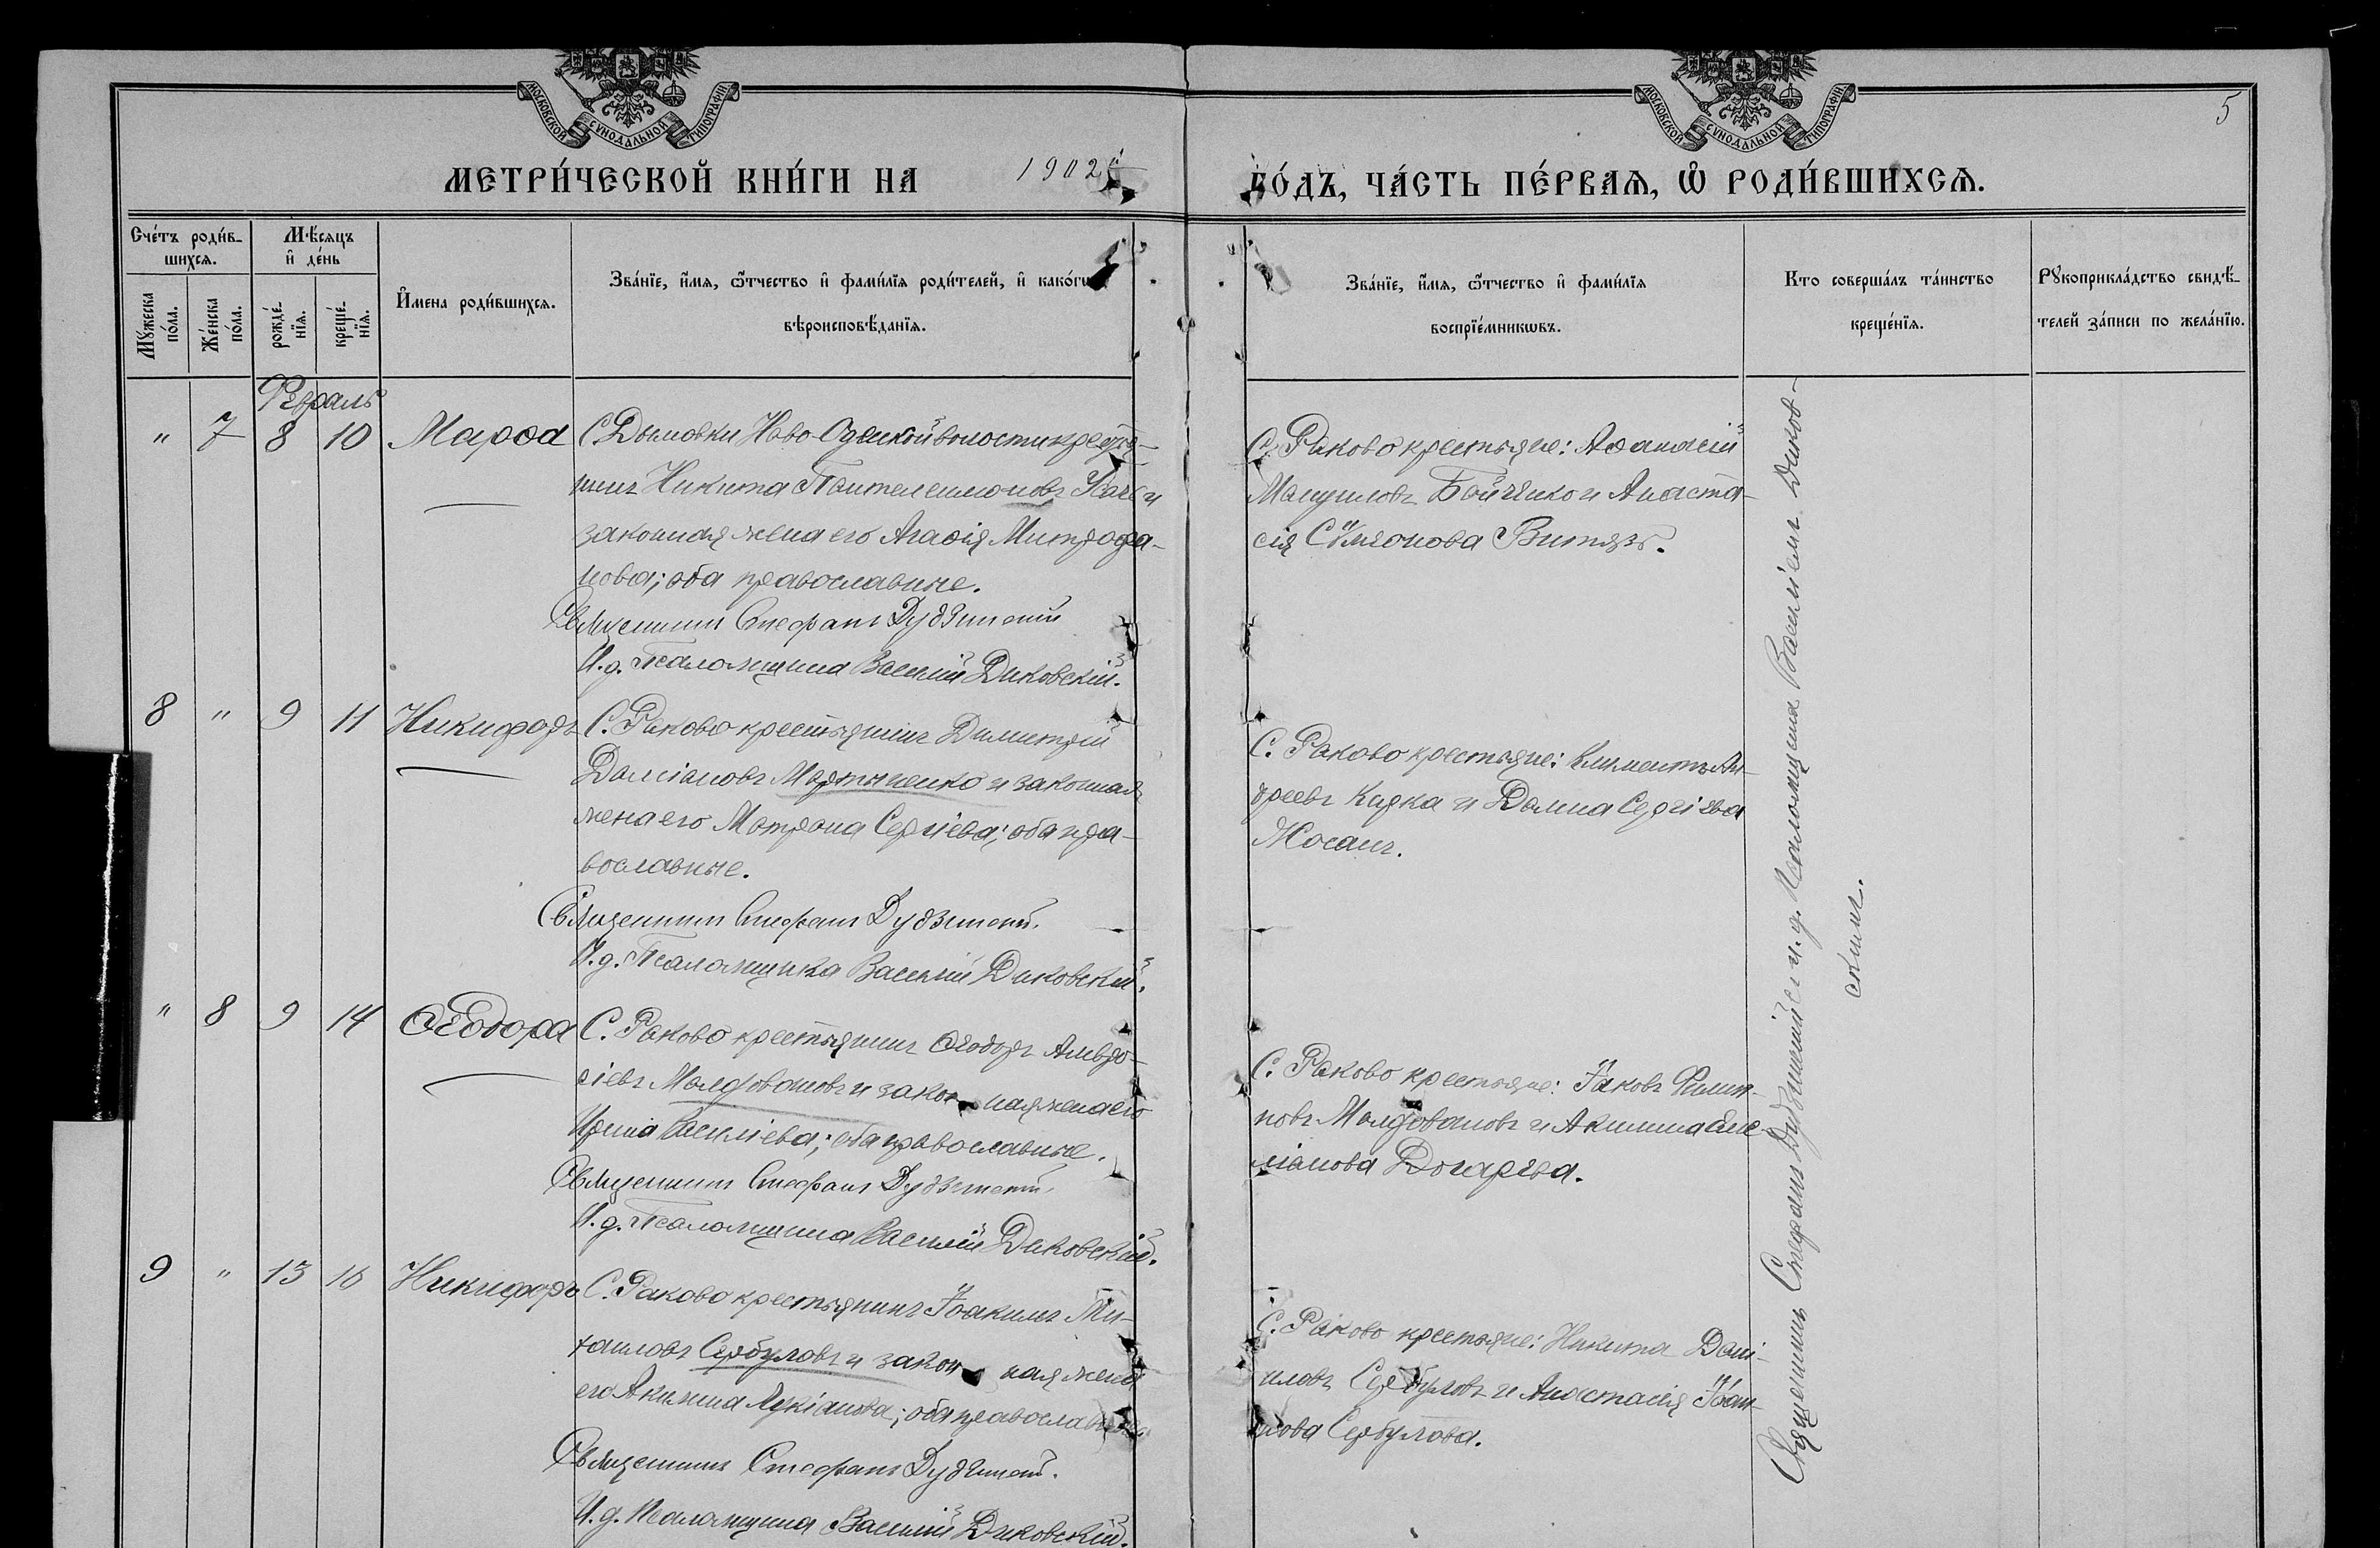 МОСКОВСКОЙ СУНОДАЛЬНОЙ ТИПОГРАФІИ
МОСКОВСКОЙ СУНОДАЛЬНОЙ ТИПОГРАФІИ
5
МЕТРИ́ЧЕСКОЙ КНИ́ГИ НА 1902
ГО́ДЪ, ЧА́СТЬ ПЕ́РВАѦ, Ѡ҆ РОДИ́ВШИХСѦ.
Сче́тъ роди́в-
шихсѧ.
Мѣ́сѧцъ
и҆ де́нь
Мꙋ́жеска
по́ла.
Же́нска
по́ла.
рожде́-
нїѧ.
креще́-
нїѧ.
И҆мена роди́вшихсѧ.
Зва́нїе, и҆́мѧ, ѻ҆́тчество и҆ фами́лїѧ роди́телей, и҆ како́гѡ
вѣроисповѣ́данїѧ.
Зва́нїе, и҆́мѧ, ѻ҆́тчество и҆ фами́лїѧ
воспрїе́мникѡвъ.
Кто соверша́лъ та́инство
креще́нїѧ.
Рꙋкоприкла́дство свидѣ́-
телей за́писи по жела́нїю.
Февраль
" 7 8 10 Марѳа С. Дымовки Ново-Одесской волости крестья-
нинъ Никита Пантелеимоновъ и
законная жена его Агаѳія Митрофа-
нова; оба православные.
Священникъ Стефанъ Дудзинскій
И. д. Псаломщика Василій Диковскій.
С. Раково крестьяне: Аѳанасій
Мануиловъ Бойченко и Анаста-
сія Сѵмеонова Витязь.
8 " 9 11 Никифоръ С. Раково крестьянинъ Димитрій
Даміановъ Мартыненко и законная
жена его Матрона Сергіева; оба пра-
вославные.
Священникъ Стефанъ Дудзинскій.
И. д. Псаломщика Василій Диковскій.
С. Раково крестьяне: Климентъ Ан-
дреевъ Кирка и Домна Сергіева
Мосанъ.
" 8 9 14 Ѳеодора С. Раково крестьянинъ Ѳеодоръ
сіевъ Молдовановъ и законная жена его
Ирина Василіева; оба православные.
Священникъ Стефанъ Дудзинскій.
И. д. Псаломщика Василій Диковскій.
С. Раково крестьяне: Іаковъ Филип-
повъ Молдовановъ и Акилина Еме-
ліанова Догарева.
9 " 13 16 Никифоръ С. Раково крестьянинъ Іоакимъ Ми-
хаиловъ Сербуловъ и законная жена
его Акилина Лукіанова; оба православные
Священникъ Стефанъ Дудзинскій.
И. д. Псаломщика Василій Диковскій.
С. Раково крестьяне: Никита Дані-
иловъ Сербуловъ и Анастасія Іоан-
нова Сербулова.
Священникъ Стефанъ Дудзинскій съ и. д. Псаломщика Василіемъ Диков-
скимъ.